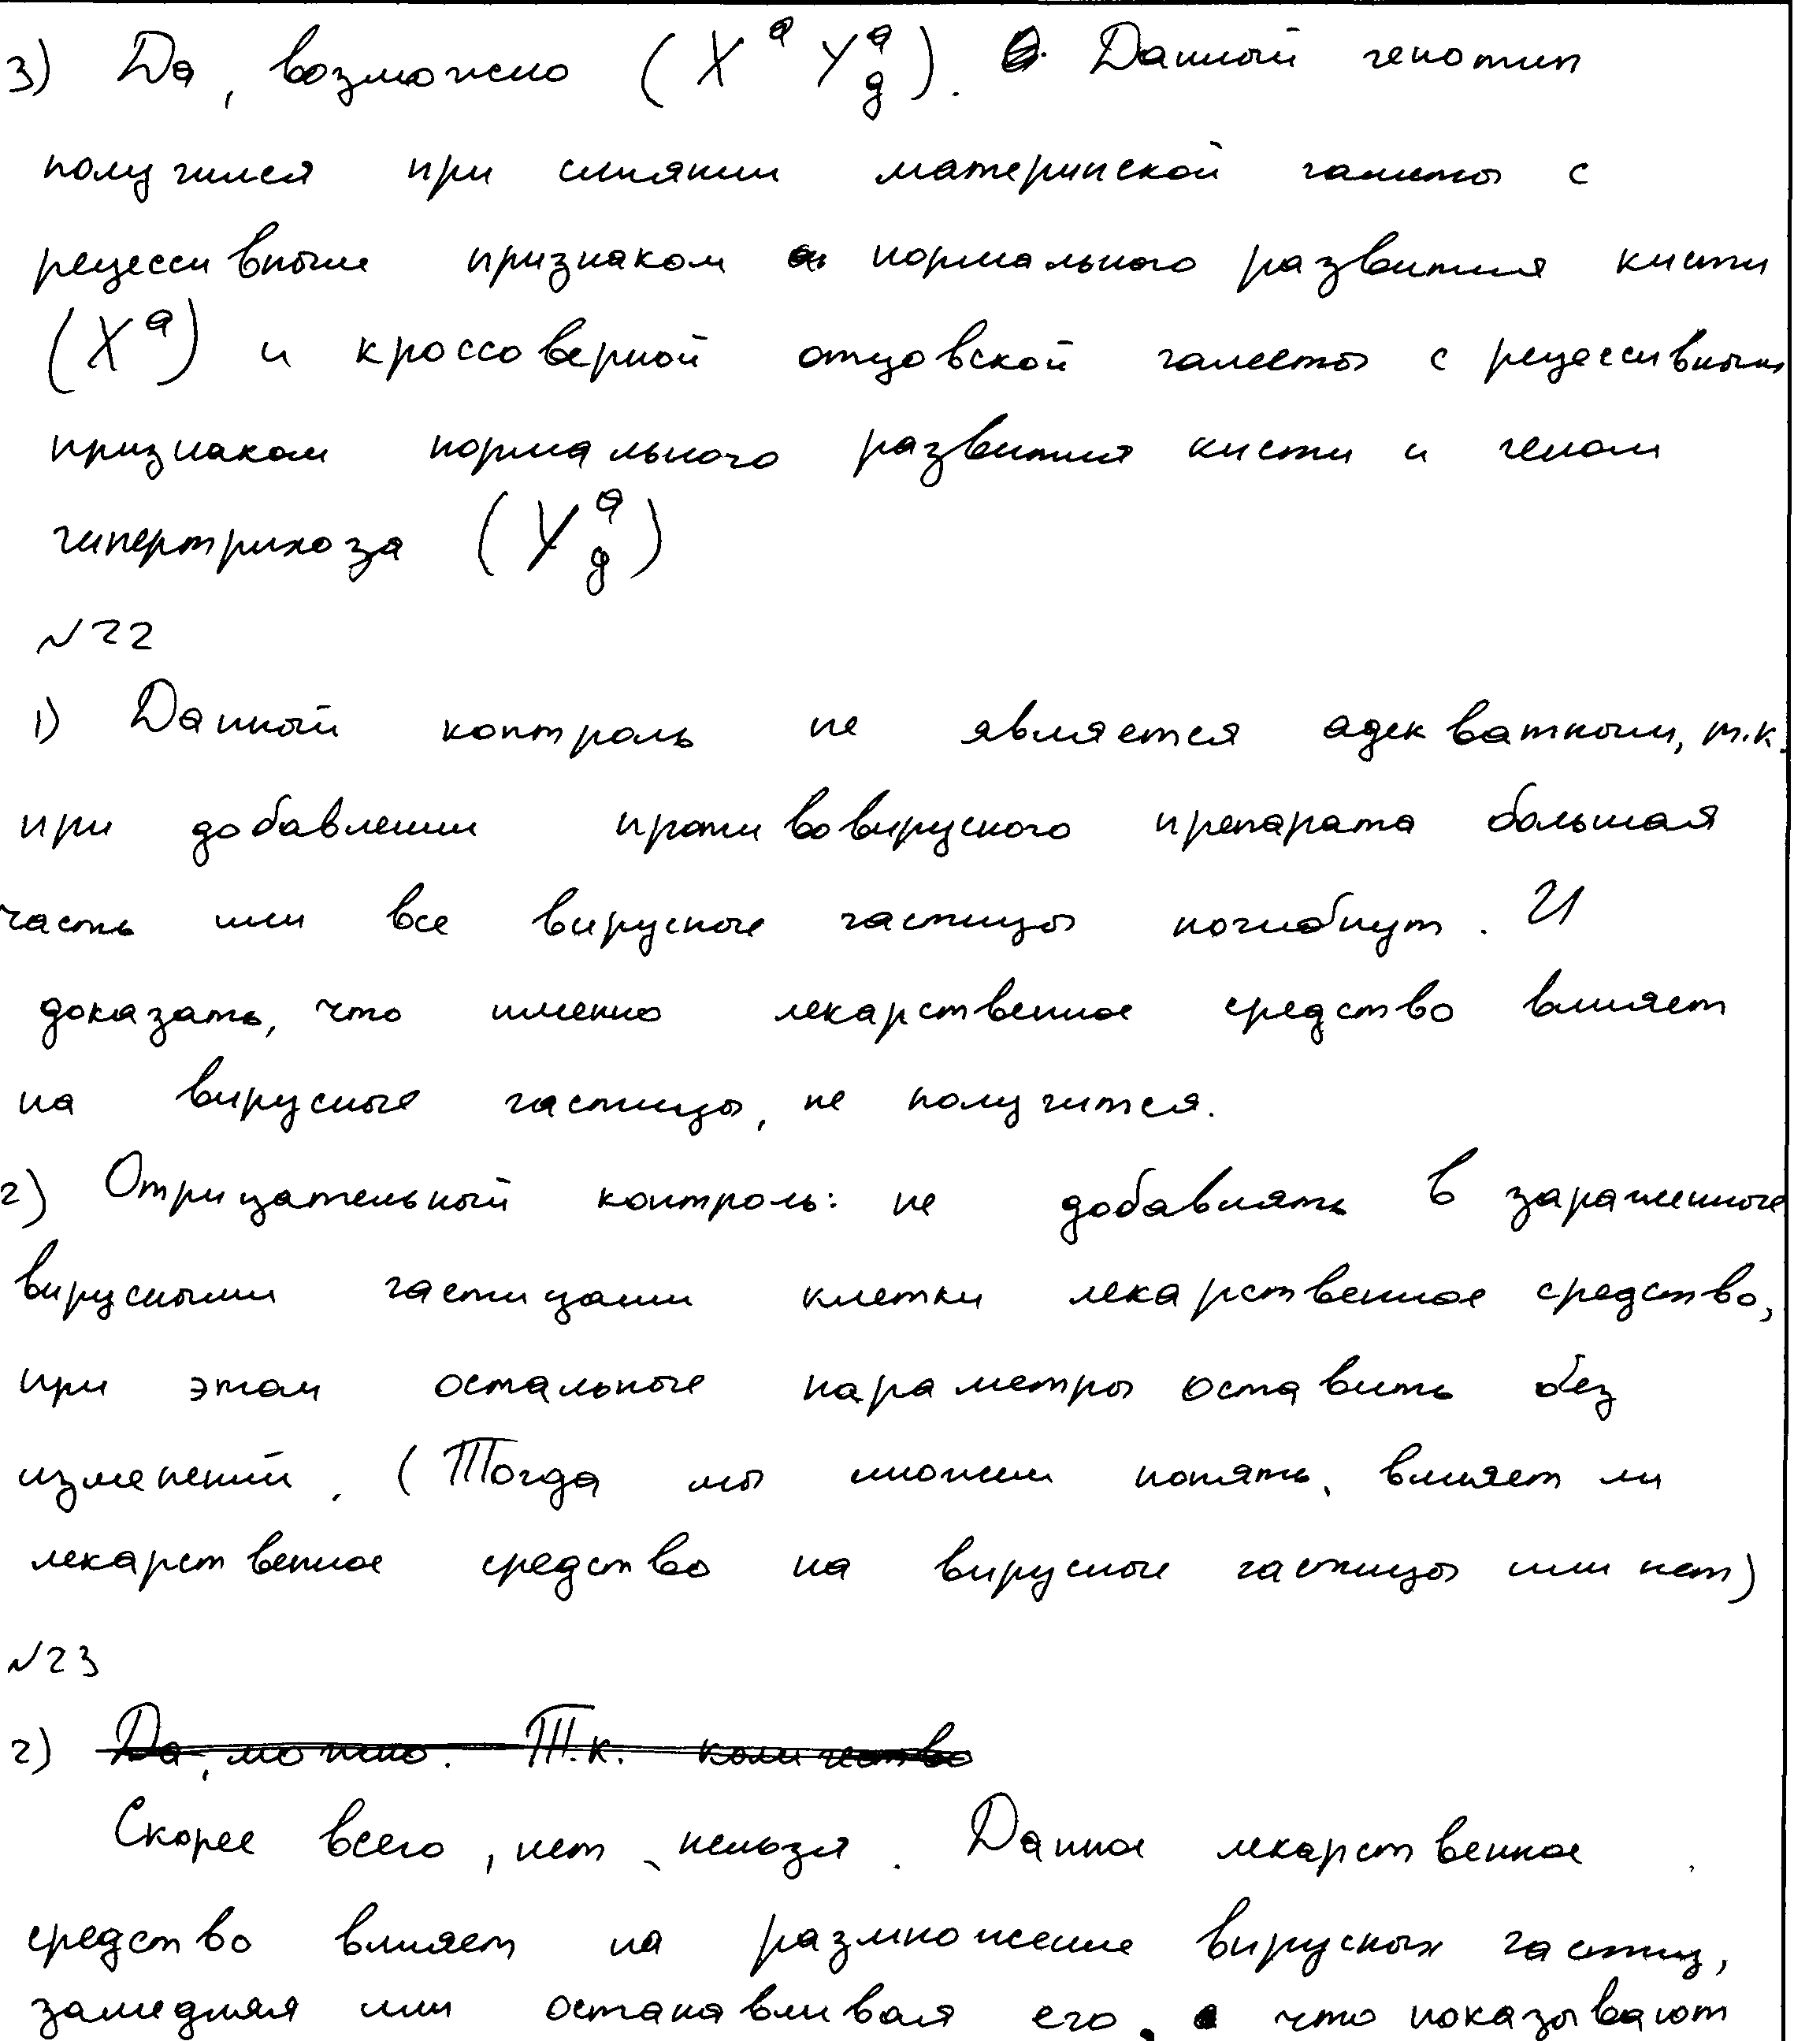 3) Да, возможно (X^a Y^a_g). Данный генотип
получился при слиянии материнской гаметы с
рецессивным признаком нормального развития кисти
(X^a) и кроссоверной отцовской гаметы с рецессивным
признаком нормального развития кисти и геном
гипертрихоза (Y^a_g)
№22
1) Данный контроль не является адекватным, т.к.
при добавлении противовирусного препарата большая
часть или все вирусные частицы погибнут. И
доказать, что именно лекарственное средство влияет
на вирусные частицы, не получится.
2) Отрицательный контроль: не добавлять в зараженные
вирусными частицами клетки лекарственное средство,
при этом остальные параметры оставить без
изменений. (Тогда мы сможем понять, влияет ли
лекарственное средство на вирусные частицы или нет)
№23
2) Да, можно. Т.к. количество
Скорее всего, нет, нельзя. Данное лекарственное
средство влияет на размножение вирусных частиц,
замедляя или останавливая его, что показывают